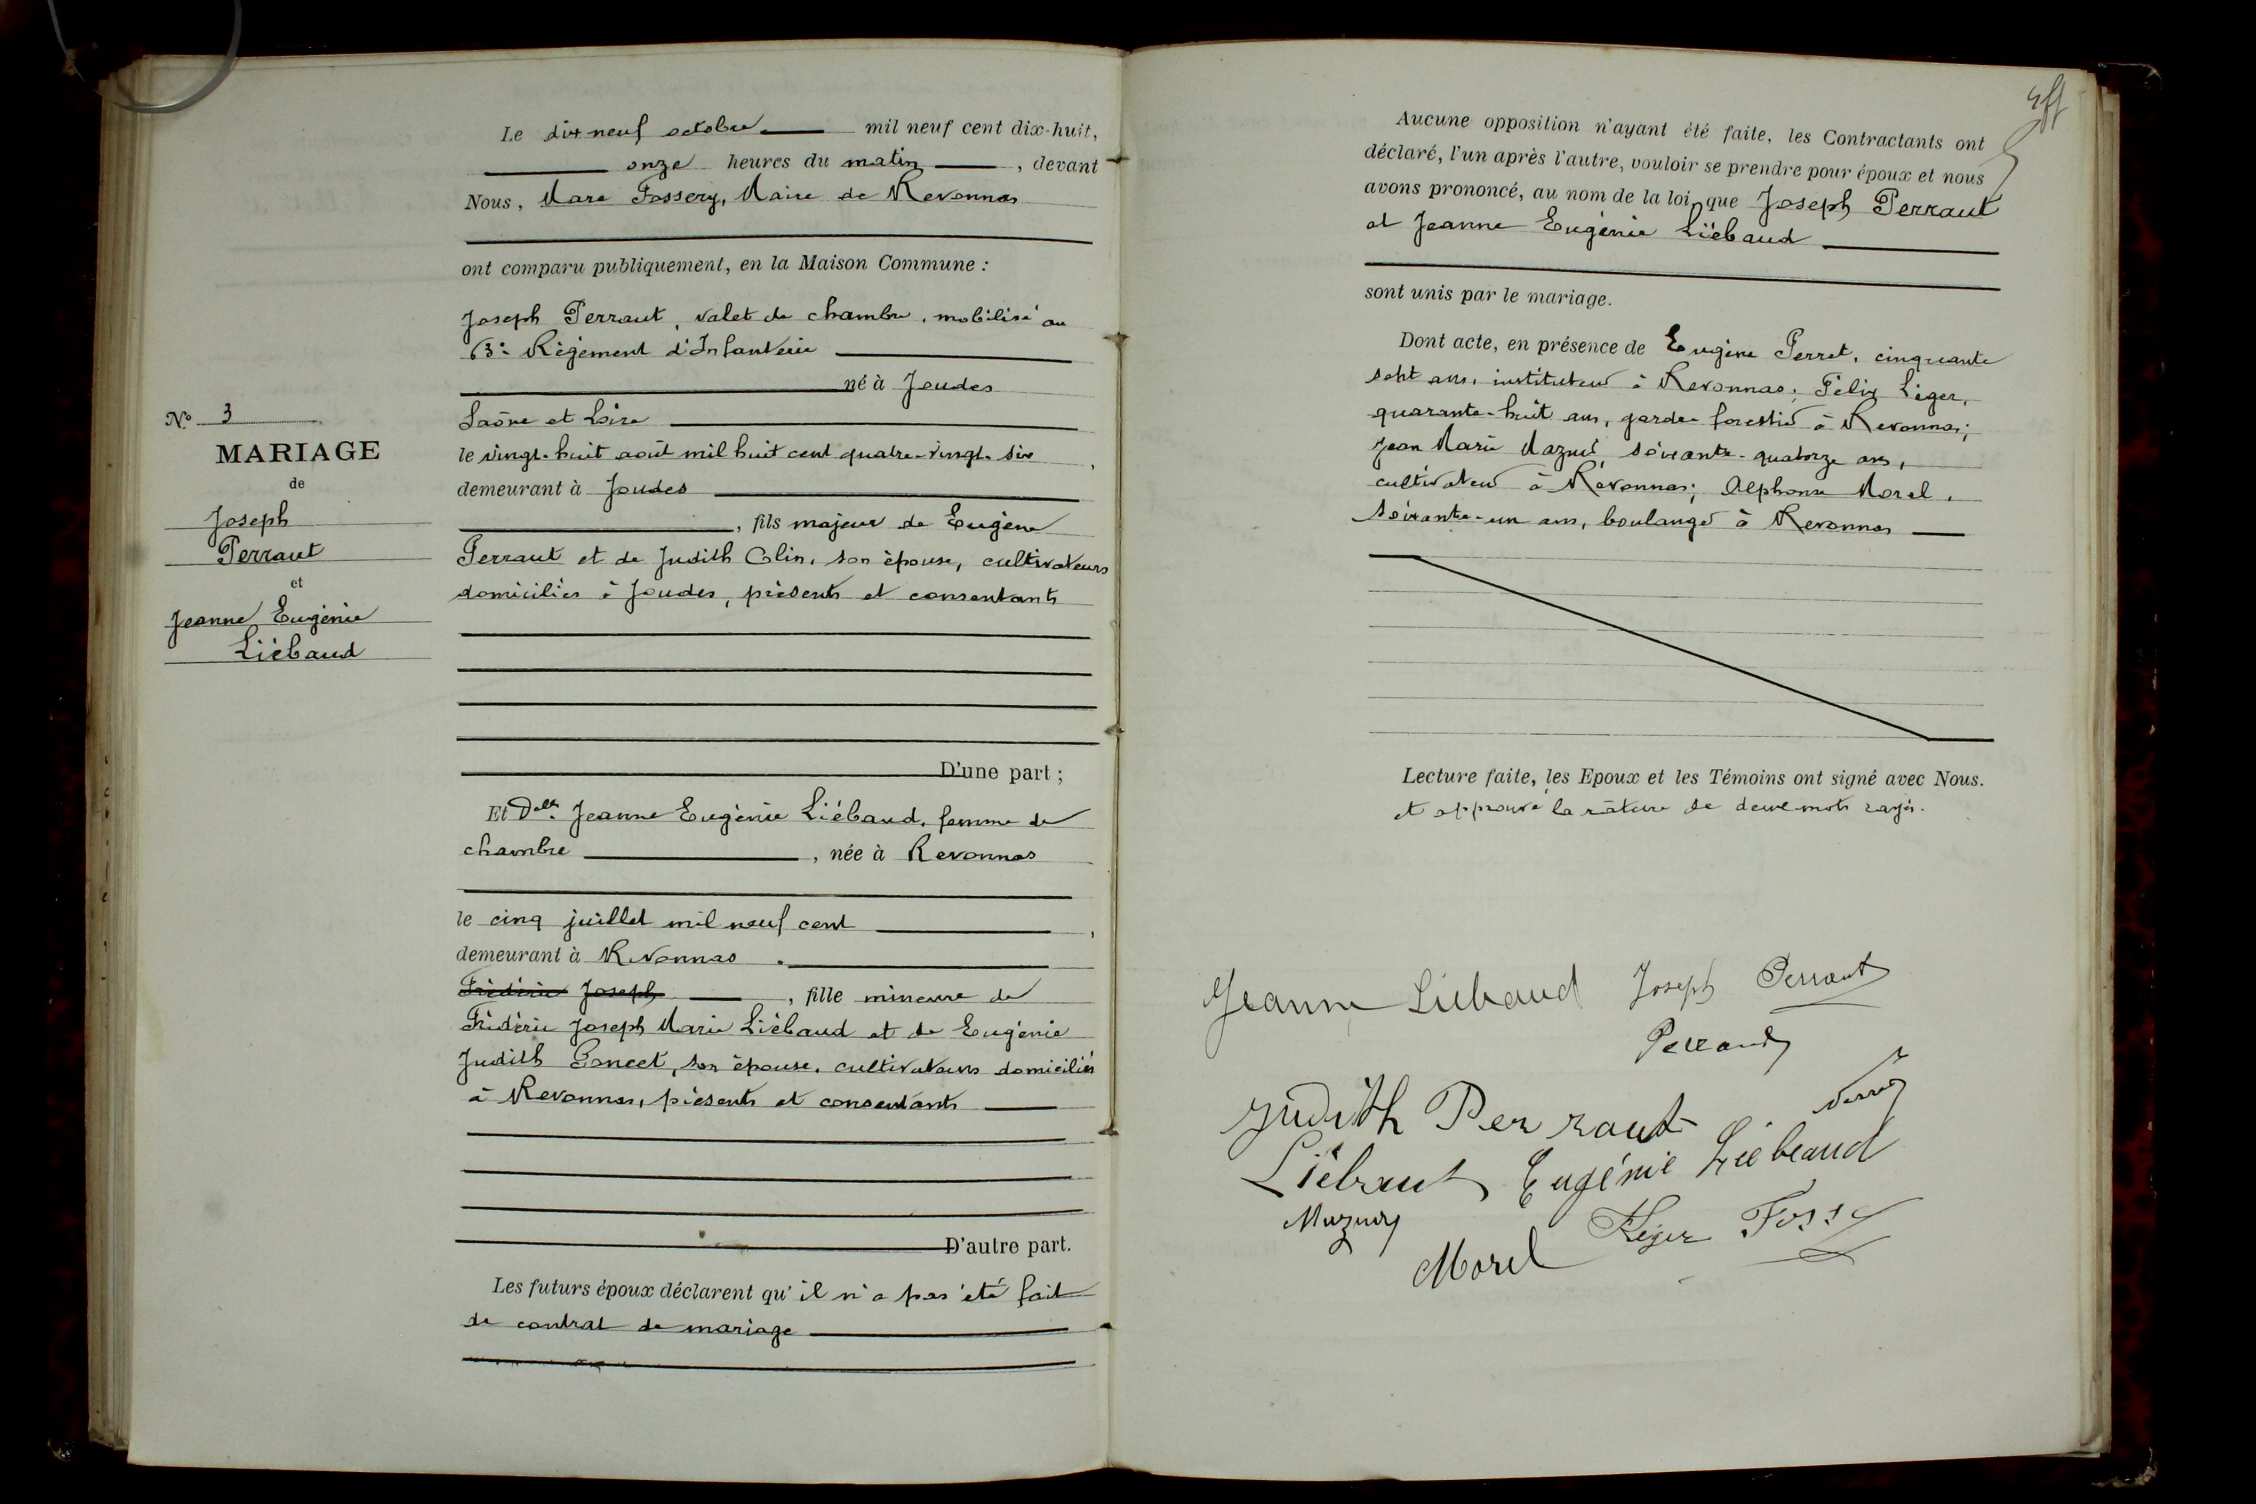 Le dix neuf octobre mil neuf cent dix-huit,
onze heures du matin, devant
Nous, Marc Fossery, Maire de Revonnas
ont comparu publiquement, en la Maison Commune :
Joseph Perraut, valet de chambre, mobilisé au
63e Régiment d'Infanterie
né à Joudes
Saône et Loire
le vingt-huit août mil huit cent quatre-vingt-six,
demeurant à Joudes
, fils majeur de Eugène
Perraut et de Judith Colin, son épouse, cultivateurs
domiciliés à Joudes, présents et consentants
D'une part ;
N° 3
MARIAGE
de
Joseph
Perraut
et
Jeanne Eugénie
Liébaud
Et Delle Jeanne Eugénie Liébaud, femme de
chambre, née à Revonnas
le cinq juillet mil neuf cent,
demeurant à Revonnas
Frédéric Joseph, fille mineure de
Frédéric Joseph Marie Liébaud et de Eugénie
Judith Goncet, son épouse, cultivateurs domiciliés
à Revonnas, présents et consentants
D'autre part.
Les futurs époux déclarent qu'il n'a pas été fait
de contrat de mariage
Aucune opposition n'ayant été faite, les Contractants ont
déclaré, l'un après l'autre, vouloir se prendre pour époux et nous
avons prononcé, au nom de la loi, que Joseph Perraut
et Jeanne Eugénie Liébaud
sont unis par le mariage.
Dont acte, en présence de Eugène Perret, cinquante
sept ans, instituteur à Revonnas; Félix Léger,
quarante-huit ans, garde forestier à Revonnas;
Jean Marie Mazuir, soixante-quatorze ans,
cultivateur à Revonnas; Alphonse Morel,
soixante-un ans, boulanger à Revonnas
Lecture faite, les Epoux et les Témoins ont signé avec Nous.
et approuvé la rature de deux mots rayés.
Jeanne Liebaud Joseph Perraut
Perraut
Judith Perraut
Liébaud Eugénie Liébeaud
Morel Léger